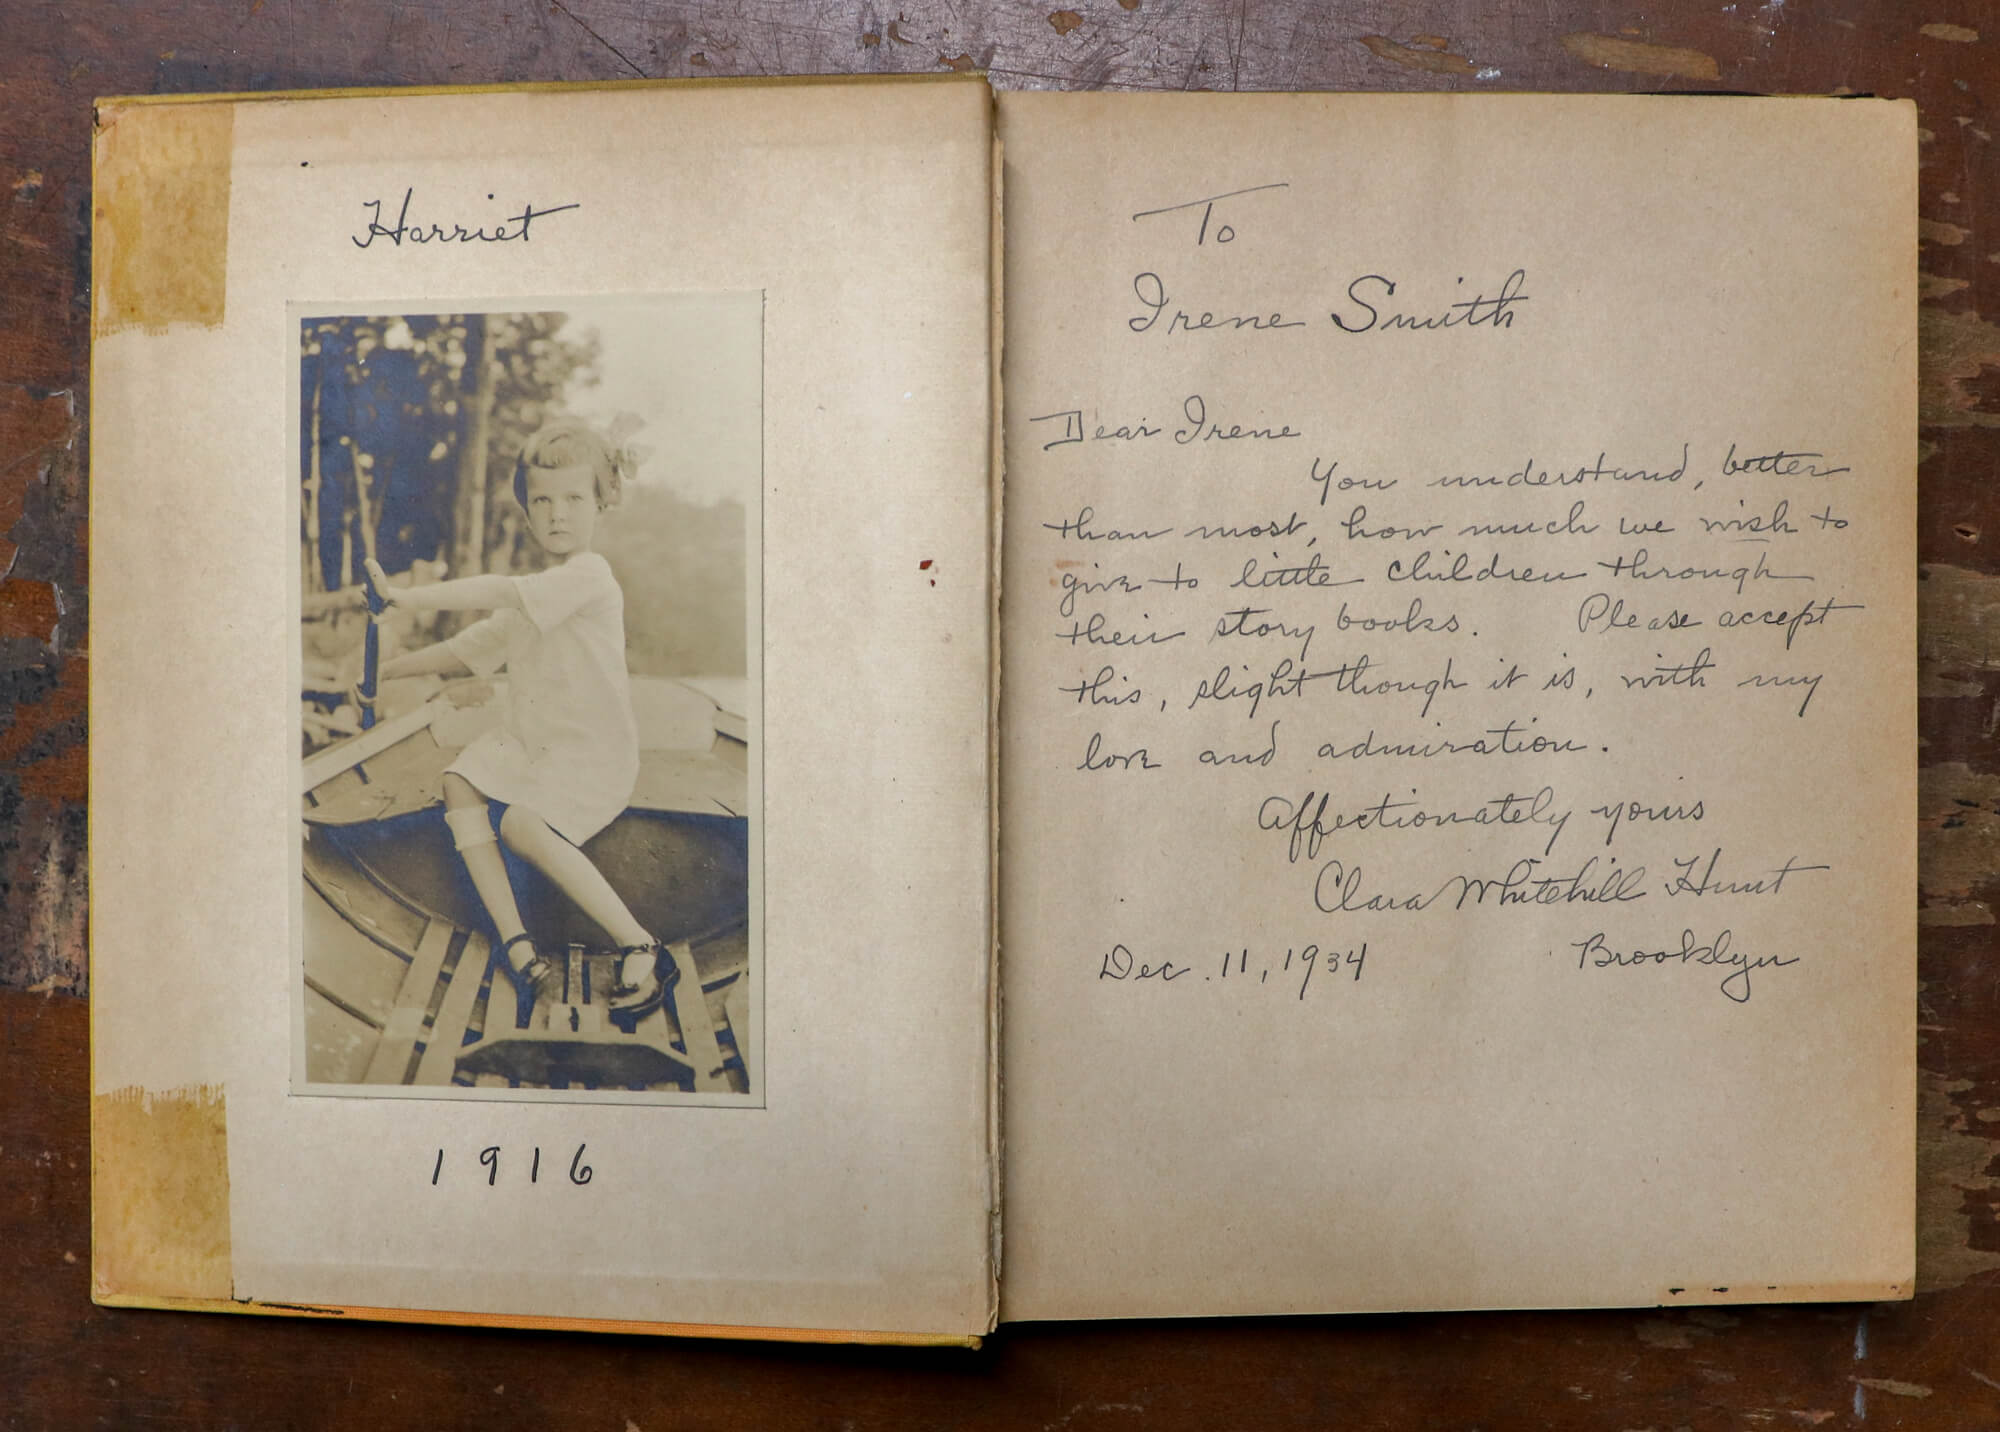 Harriet
1916
To
Irene Smith
Dear Irene
You understand, better
than most, how much we wish to
give to little children through
their story books. Please accept
this, slight though it is, with my
love and admiration.
Affectionately yours
Clara Whitehill Hunt
Dec. 11, 1934 Brooklyn